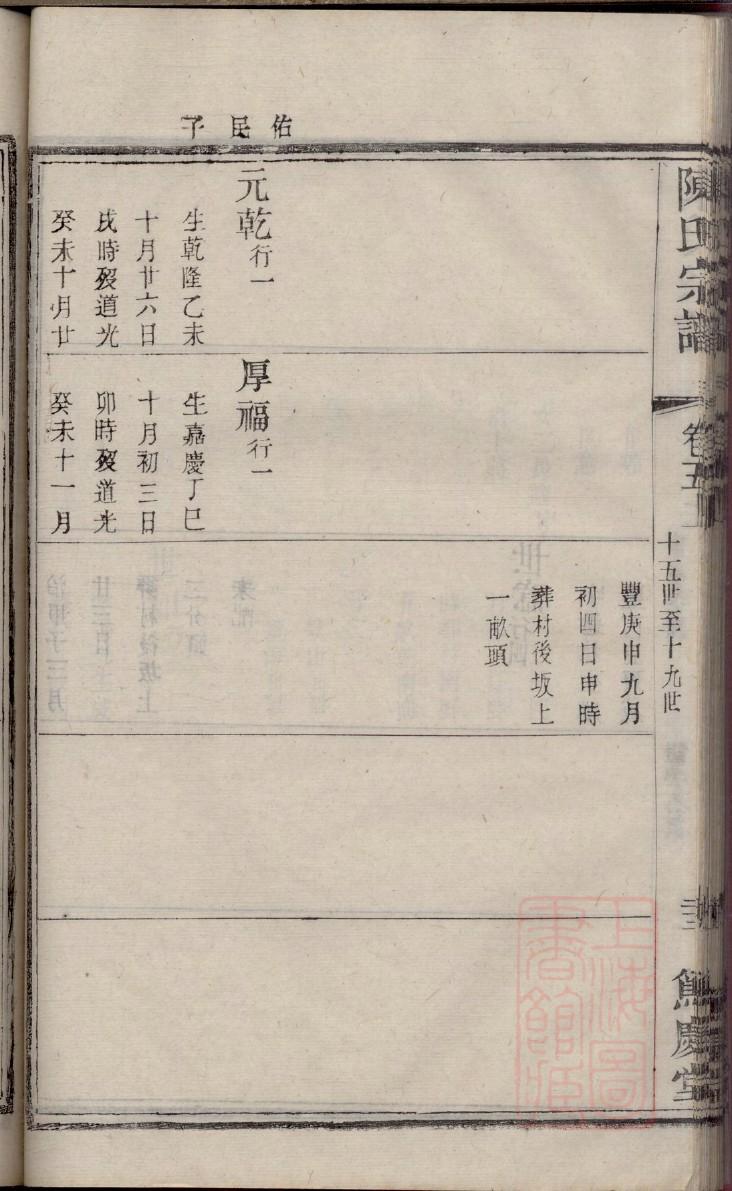 陳氏宗譜
卷五
十五世至十九世
佑民子
元乾行一
生乾隆乙未
十月廿六日
戌時歿道光
癸未十月廿
厚福行一
生嘉慶丁巳
十月初三日
卯時歿道光
癸未十一月
豐庚申九月
初四日申時
葬村後坂上
一畝頭
上海圖
書館藏